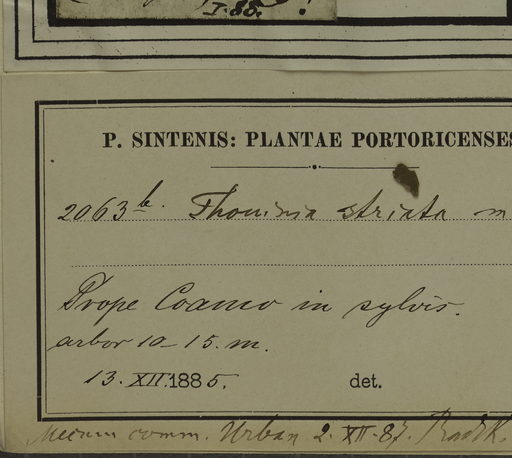 I. 80.
P. SINTENIS: PLANTAE PORTORICENSES
2063 b. Thouinia striata m
Prope Coamo in sylvis.
arbor 10-15. m.
13. XII. 1885. det.
Mecum comm. Urban 2. XII. 87. Radlk.